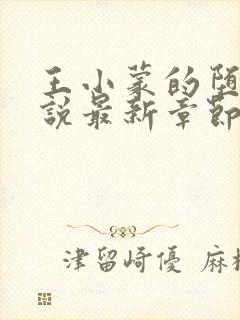 王小蒙的堕
説最新章節
津留崎優 麻